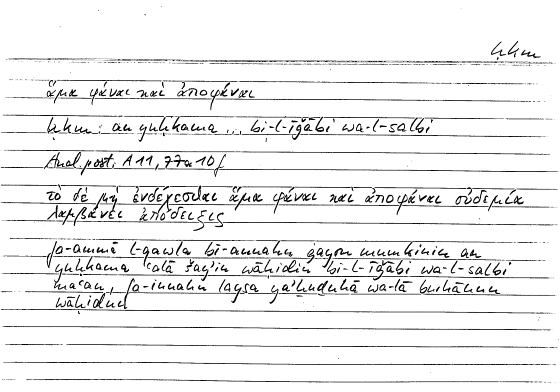 ḥkm
ἅμα φάναι καὶ ἀποφάναι
ḥkm: an yuḥkama ... bi-l-īǧābi wa-l-salbi
Anal. post. A 11, 77a10f
τὸ δὲ μὴ ἐνδέχεσθαι ἅμα φάναι καὶ ἀποφάναι οὐδεμία
λαμβάνει ἀπόδειξις
fa-ammā l-qawlu bi-annahu ġayru mumkinin an
yuḥkama ʿalā šayʾin wāḥidin bi-l-īǧābi wa-l-salbi
maʿan, fa-innahū laysa yaʾḫuḏuhā wa-lā burhānun
wāḥidun